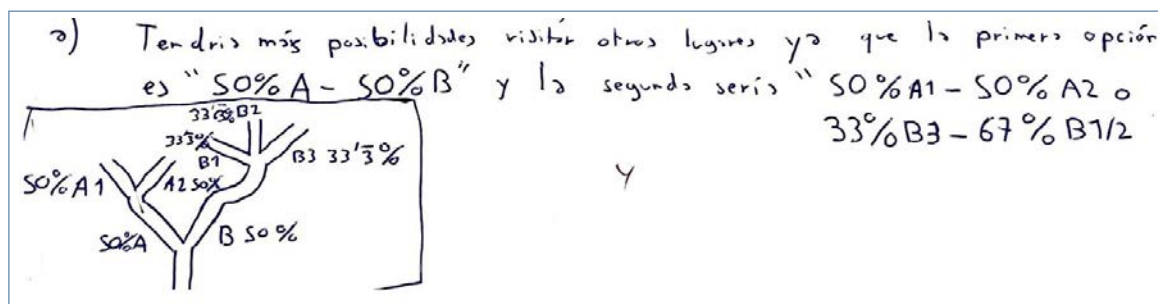 a) Tendria más posibilidades visitar otros lugares ya que la primera opción
es "50% A - 50% B" y la segunda sería "50% A1 - 50% A2 o
33% B3 - 67% B1/2
33'3% B2
33'3%
B1
B3 33'3%
50% A1
A2 50%
50% A
B 50%
y